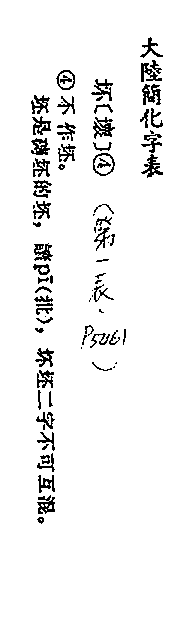 大陸簡化字表
坏〔壞〕④ (第一表. P5061)
④不作坯。
坯是磚坯的坯，讀pī(批)，坏坯二字不可互混。